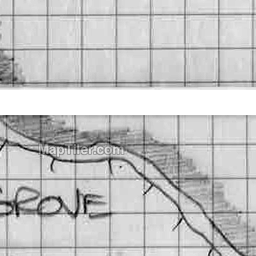 MapTiler.com
GROVE